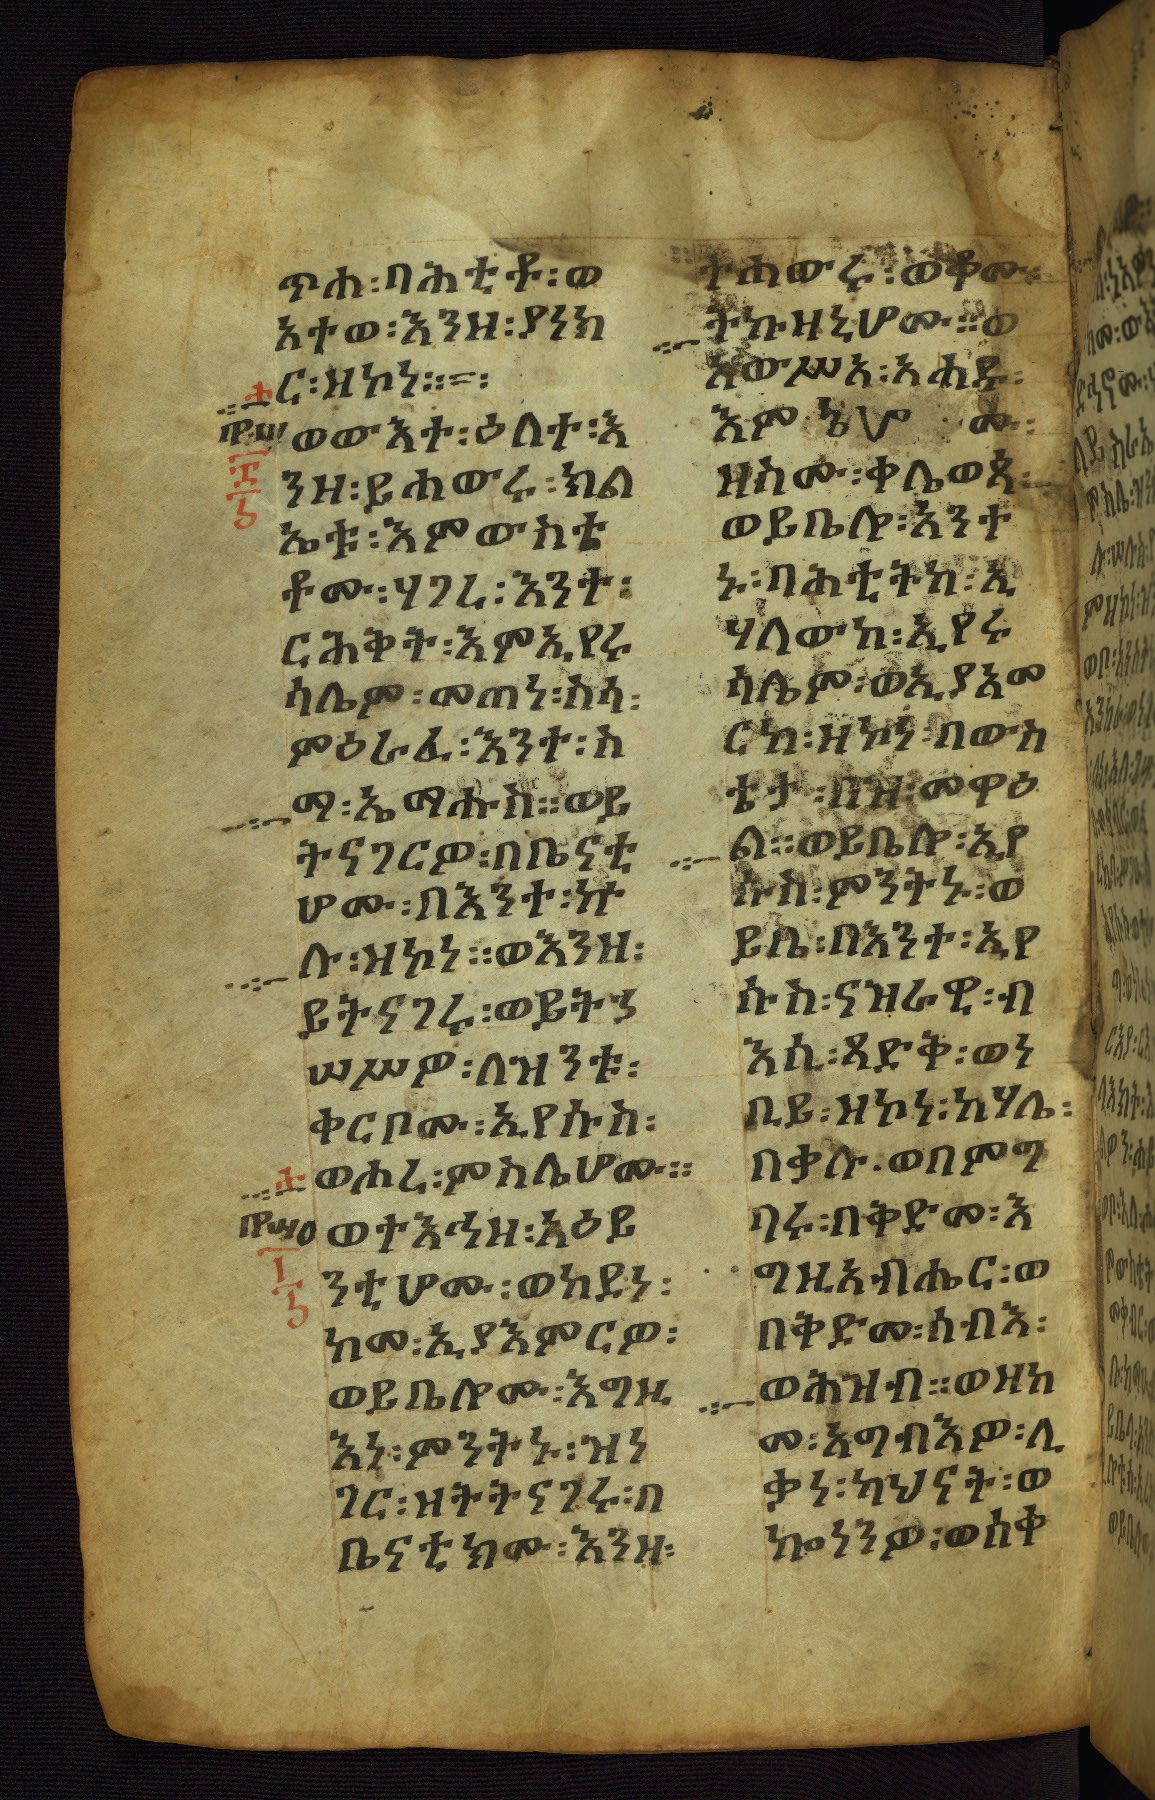 ጥሐ፡ባሕቲቶ፡ወ
አተወ፡እንዘ፡ያነክ
ር፡ዘኮነ፡፡=፡
ወውእተ፡ዕለተ፡እ
ንዘ፡ይሐውሩ፡ክል
ኤቱ፡እምውስቴ
ቶሙ፡ሃገረ፡እንተ፡
ርሕቅት፡እምኢየሩ
ሳሌም፡መጠነ፡ስሳ፡
ምዕራፈ፡እንተ፡ስ
ማ፡ኤማሑስ፡፡ወይ
ትናገርዎ፡በቤናቲ
ሆሙ፡በእንተ፡ኵ
ሉ፡ዝኮነ፡፡ወእንዘ፡
ይትናገሩ፡ወይትኃ
ሠሥዎ፡ለዝንቱ፡
ቀርቦሙ፡ኢየሱስ፡
ወሐረ፡ምስሌሆሙ፡፡
ወተእኅዘ፡አዕይ
ንቲሆሙ፡ወከደነ፡
ከመ፡ኢያእምርዎ፡
ወይቤሎሙ፡እግዚ
እነ፡ምንትኑ፡ዝነ
ገር፡ዘትትናገሩ፡በ
ቤናቲክሙ፡እንዘ፡
ተሐውሩ፡ወቆሙ፡
ትኩዛኒሆሙ፡፡ወ
አውሥአ፡አሐዱ፡
እም ኔሆ ሙ፡
ዘስሙ፡ቀሌወጳ፡
ወይቤሎ፡አንተ
ኑ፡ባሕቲትከ፡ኢ
ሃለውከ፡ኢየሩ
ሳሌም፡ወኢያእመ
ርከ፡ዘኮነ፡በውስ
ቴታ፡በዝ፡መዋዕ
ል፡፡ወይቤሎ፡ኢየ
ሱስ፡ምንትኑ፡ወ
ይቤ፡በእንተ፡ኢየ
ሱስ፡ናዝራዊ፡ብ
እሲ፡ጻድቅ፡ወነ
ቢይ፡ዘኮነ፡ከሃሌ፡
በቃሉ፡ወበምግ
ባሩ፡በቅድመ፡እ
ግዚአብሔር፡ወ
በቅድመ፡ሰብእ፡
ወሕዝብ፡፡ወዘከ
መ፡አግብእዎ፡ሊ
ቃነ፡ካህናት፡ወ
ኰነንዎ፡ወሰቀ